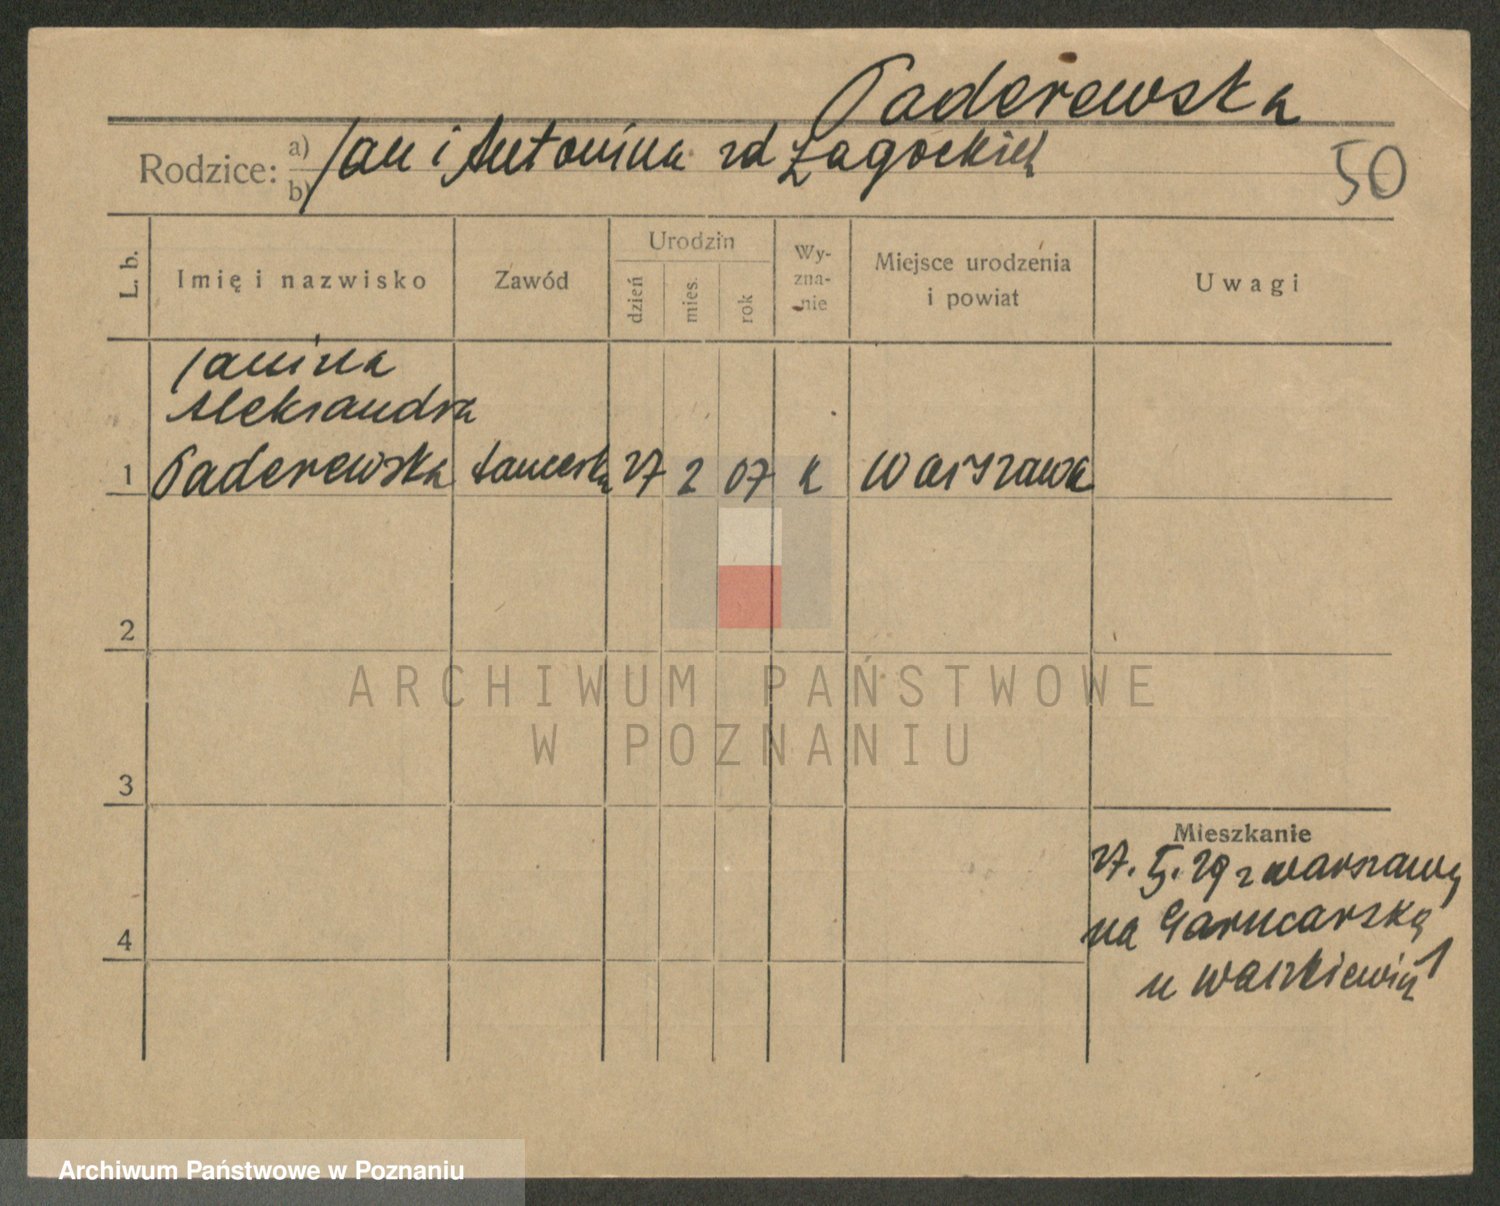 Paderewska
Rodzice: a) b) Jan i Antonina zd Zagóckich
50
L. b.
Imię i nazwisko
Zawód
Urodzin
dzień
mies.
rok
Wy-
zna-
nie
Miejsce urodzenia
i powiat
Uwagi
Janina
Aleksandra
1 Paderewska tancerka 27 2 07 k Warszawa
2
3
4
Mieszkanie
27. 5. 29 z Warszawy
na Garncarską 1
u
ARCHIWUM PAŃSTWOWE
W POZNANIU
Archiwum Państwowe w Poznaniu